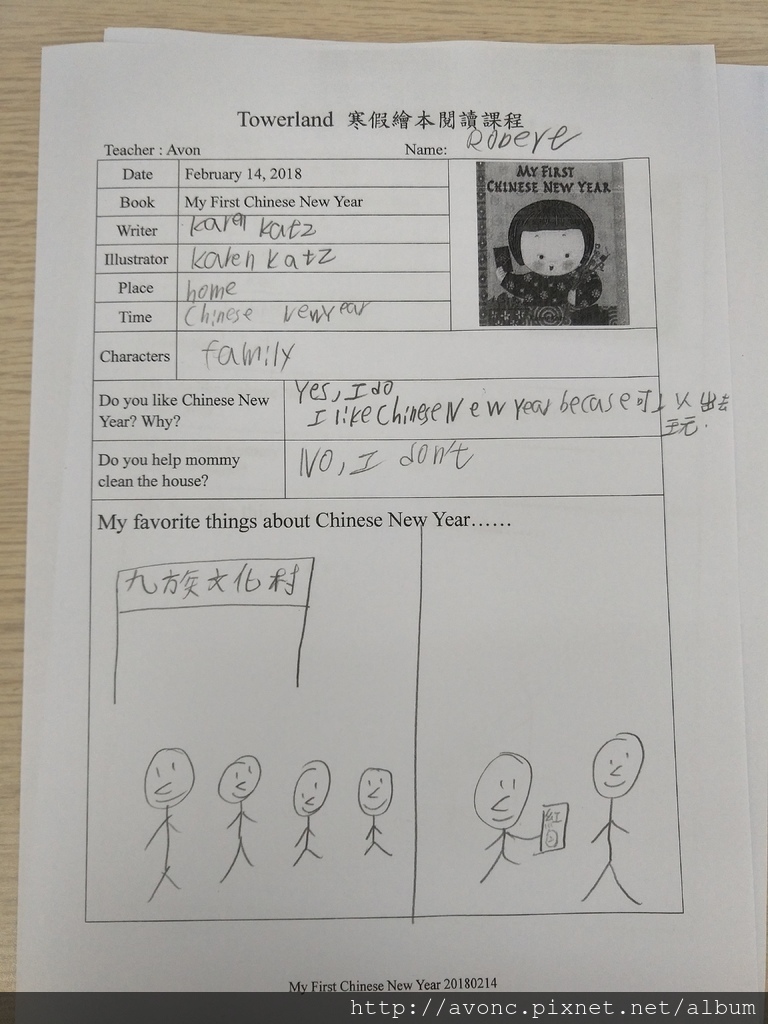 Towerland 寒假繪本閱讀課程
Teacher : Avon Name: Robert
Date February 14, 2018
Book My First Chinese New Year
Writer karen katz
Illustrator karen katz
Place home
Time Chinese Newyear
Characters family
MY FIRST
CHINESE NEW YEAR
Do you like Chinese New
Year? Why?
Yes, I do
I like Chinese New Year becase可以出去
玩.
Do you help mommy
clean the house?
NO, I don't
My favorite things about Chinese New Year……
九族文化村
紅包
My First Chinese New Year 20180214
http://avonc.pixnet.net/album